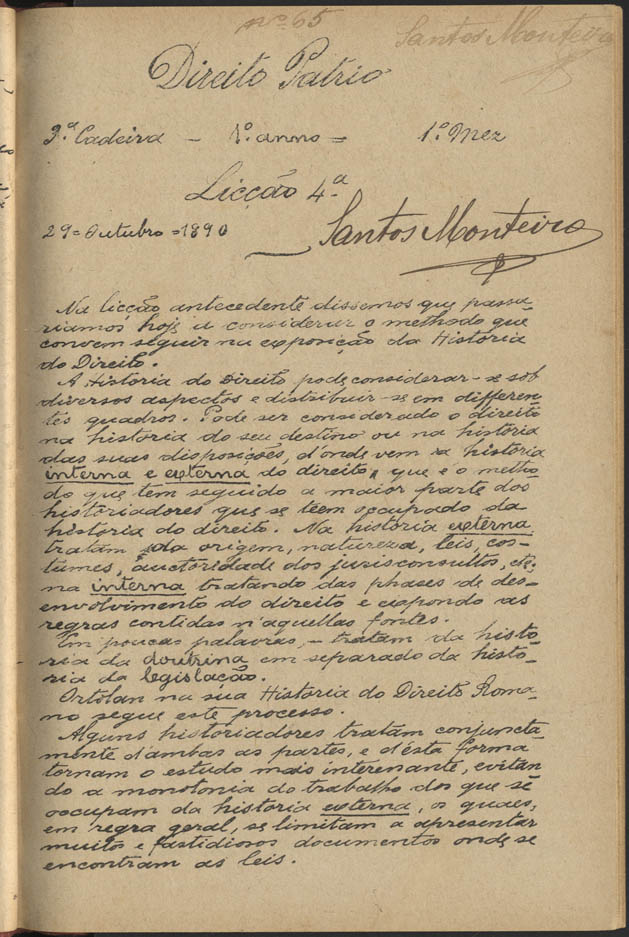 nº 65
Santos Monteiro
Direito Patrio
3.ª Cadeira - 1.º anno = 1.º Mez
Licção 4.ª
29 = Outubro = 1890
Santos Monteiro
Na licção antecedente dissemos que passa-
riamos hoje a considerar o methodo que
convem seguir na exposição da Historia
do Direito.
A Historia do Direito pode considerar-se sob
diversos aspectos e distribuir-se em differen-
tes quadros. Pode ser considerado o direito
na historia do seu destino ou na historia
das suas disposições, d'onde vem a historia
interna e externa do direito, que é o metho-
do que tem seguido a maior parte dos
historiadores que se têem occupado da
historia do direito. Na historia externa
tratam da origem, natureza, leis, cos-
tumes, auctoridade dos jurisconsultos, etc;
na interna tratando das phases de des-
envolvimento do direito e expondo as
regras contidas n'aquellas fontes.
Em poucas palavras, - tratam da histo-
ria da doutrina em separado da histo-
ria da legislação.
Ortolan na sua Historia do Direito Roma-
no segue este processo.
Alguns historiadores tratam conjuncta-
mente d'ambas as partes, e d'esta forma
tornam o estudo mais interenante, evitan-
do a monotonia do trabalho dos que se
occupam da historia externa, os quaes,
em regra geral, se limitam a apresentar
muitos e fastidiosos documentos onde se
encontram as leis.